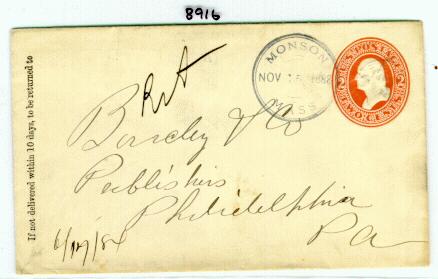 8916
If not delivered within 10 days, to be returned to
MONSON
NOV 15
MASS
U.S. POSTAGE
TWO CENTS
Barcley & Co
Publishers
Philidelphia
Pa